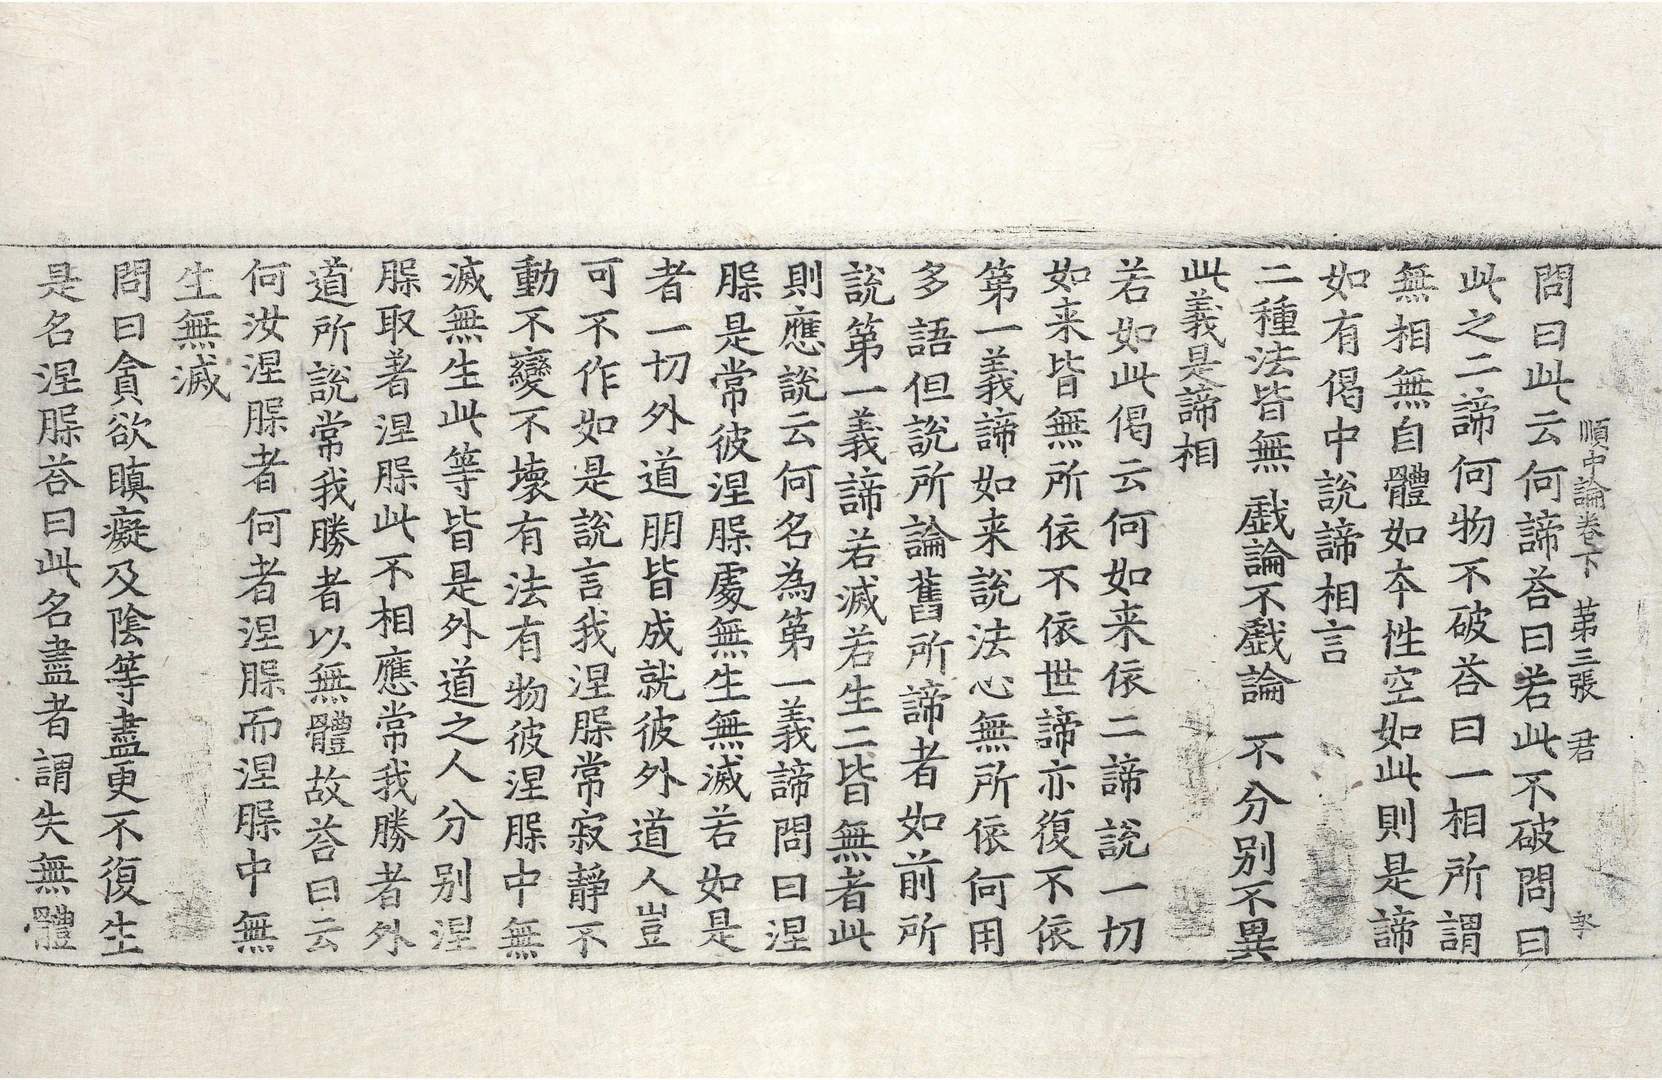 順中論卷下　第三張　君
問曰此云何諦荅曰若此不破問曰
此之二諦何物不破荅曰一相所謂
無相無自體如本性空如此則是諦
如有偈中說諦相言
二種法皆無　戱論不戱論　不分別不異
此義是諦相
若如此偈云何如来依二諦說一切
如来皆無所依不依世諦亦復不依
第一義諦如来說法心無所依何用
多語但說所論舊所諦者如前所
說第一義諦若滅若生二皆無者此
則應說云何名為第一義諦問曰涅
腞是常彼涅腞處無生無滅若如是
者一切外道朋皆成就彼外道人豈
可不作如是說言我涅腞常寂靜不
動不變不壊有法有物彼涅腞中無
滅無生此等皆是外道之人分別涅
腞取著涅腞此不相應常我勝者外
道所說常我勝者以無體故荅曰云
何汝涅腞者何者涅腞而涅腞中無
生無滅
問曰貪欲瞋癡及陰等盡更不復生
是名涅腞荅曰此名盡者謂失無體